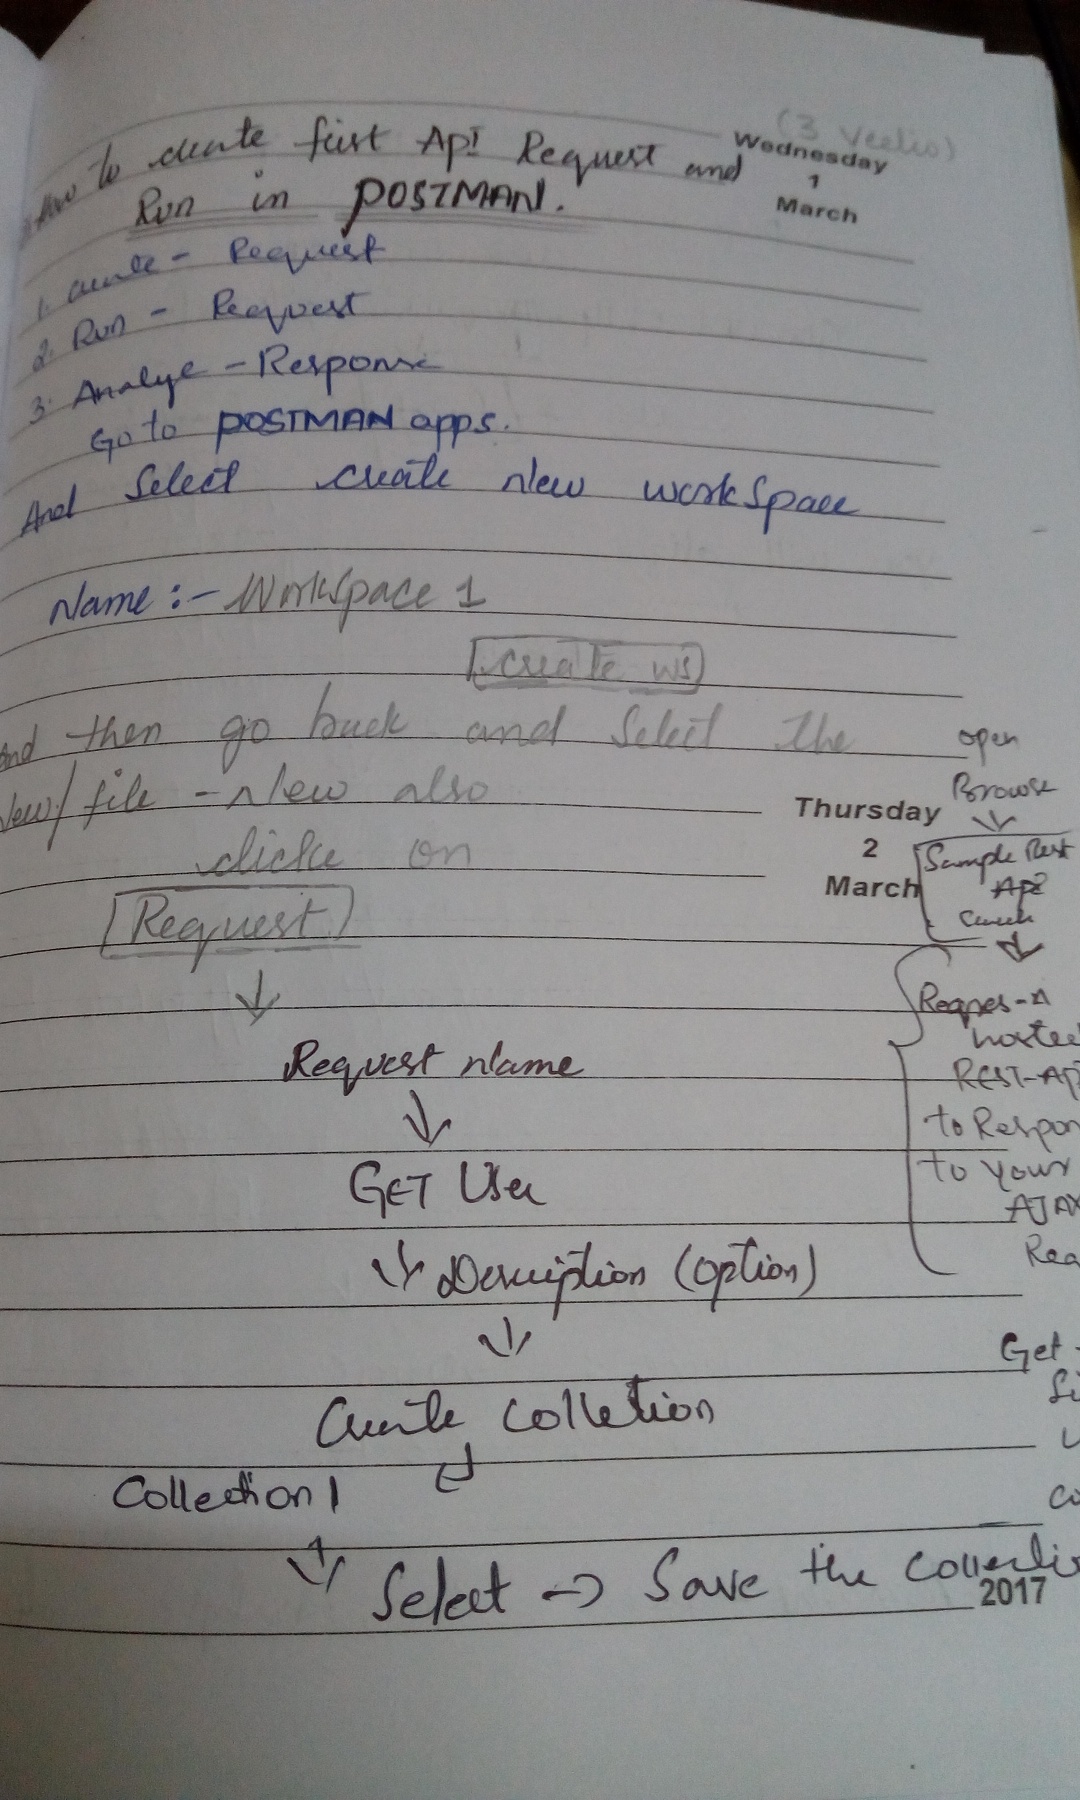 (3 Veelio)
Wednesday
1
March
How to create first ApI Request and
Run in POSTMAN.
1. create - Request
2. Run - Request
3. Analye - Response
Go to POSTMAN apps.
And Select create new workSpace
Name :- Workspace 1
create ws
And then go back and Select the
New/file - New also
clicke on
Request
↓
Request name
↓
GET User
↓ Description (option)
↓
Create colletion
Collection 1
↓ Select → Save the Collectio
Thursday
2
March
open
Browse
↓
Sample Rest
ApI
↓
Reqres - A
hosted
REST-AP
to Respon
to your
AJAX
Req
Get
Si
U
Co
2017